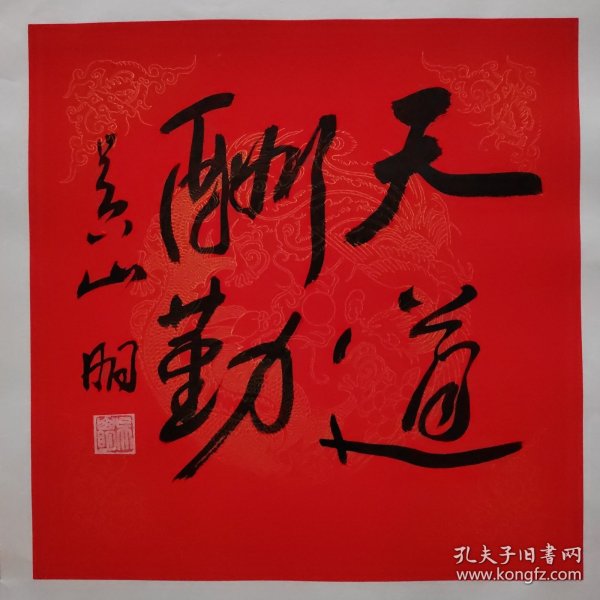 天道
酬勤
吴山明
孔夫子旧书网
www.kongfz.com